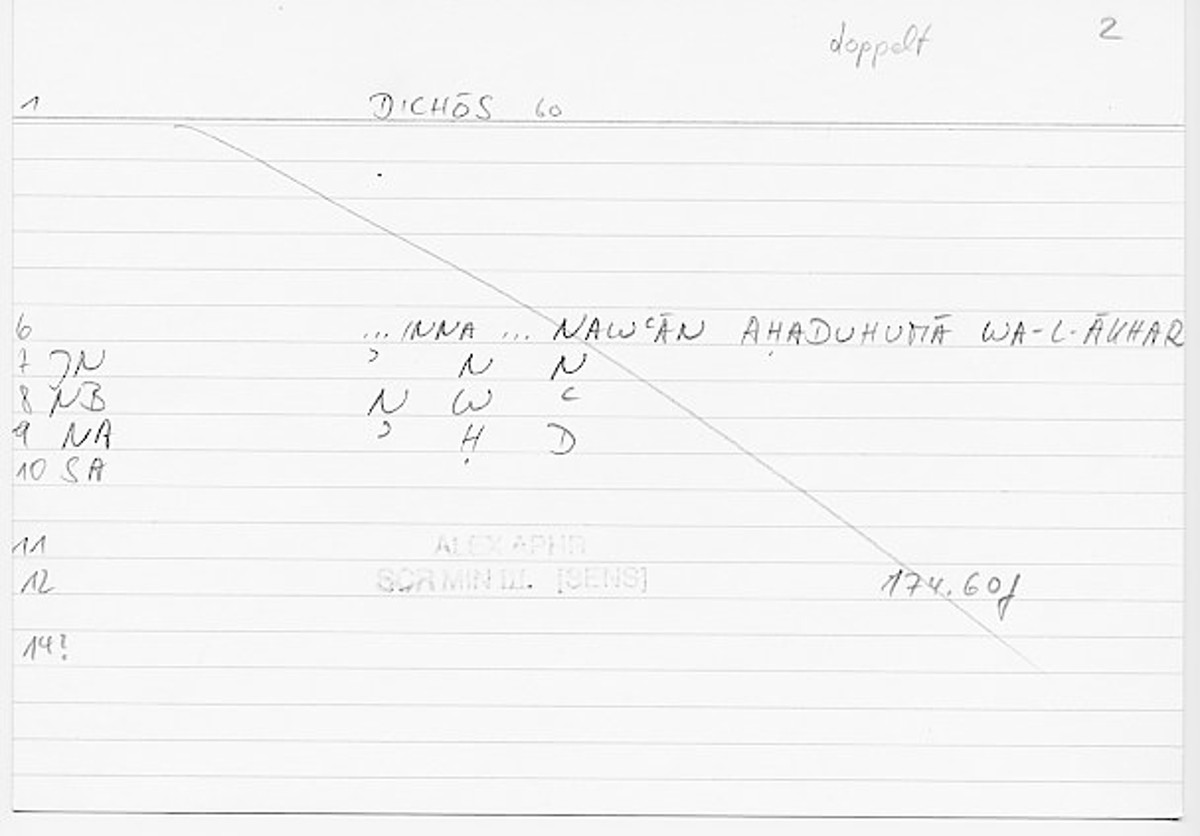 doppelt 2
1 DICHŌS 60
6 ... INNA ... NAWʿĀN AḤADUHUMĀ WA-L-ĀKHAR
7 JN ʾ N N
8 NB N W ʿ
9 NA ʾ Ḥ D
10 SA
11 ALEX APHR
12 SCR MIN III. [SENS] 174.60f
14?